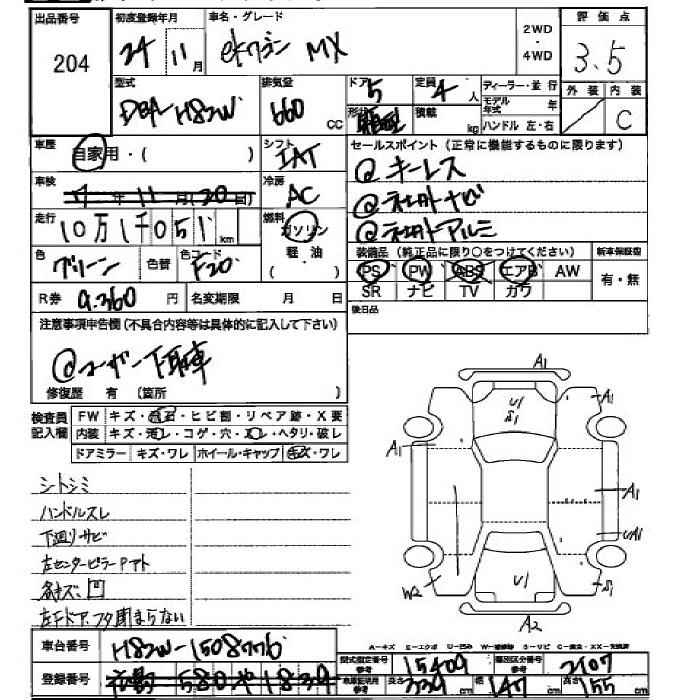 出品番号 初度登録年月 車名・グレード 2WD・4WD 評価点
204 24 11月 ekワゴン MX 3.5
型式 排気量 ドア 5 定員 4人 ディーラー・並行 外装 内装
DBA-H82W 660cc 形状 積載 kg モデル年式 年
ハンドル 左・右 C
車歴 自家用・( ) シフト IAT セールスポイント(正常に機能するものに限ります)
車検 年11月(20日) 冷房 AC @キーレス
走行 10万1千051km 燃料 ガソリン @社外ナビ
軽油 @社外アルミ
色 グリーン 色替 色コード F20 装備品(純正品に限り○をつけてください) 新車保証書
PS PW ABS エアB AW 有・無
R券 9.360円 名変期限 月 日 SR ナビ TV カワ
後日品
注意事項申告欄(不具合内容等は具体的に記入して下さい)
@ユーザー下取車
修復歴 有 (箇所 )
検査員記入欄 FW キズ・飛石・ヒビ割・リペア跡・X要
内装 キズ・汚レ・コゲ・穴・スレ・ヘタリ・破レ
ドアミラー キズ・ワレ ホイール・キャップ キズ・ワレ
A1
U1
S1
A1
A1
A1
UA1
W2
U1
S1
A2
シトシミ
ハンドルスレ
下廻りサビ
左センターピラーPマト
各キズ.凹
左Fドア.フタ閉まらない
車台番号 H82W-1508776
A-キズ E-エクボ U-凹み W-補修跡 S-サビ C-腐食・XX-交換済
登録番号 580 や1839
型式指定番号 参考 15409 類別区分番号 参考 2107
車庫証明用 参考 長さ 339cm 幅 147cm 高さ 155cm